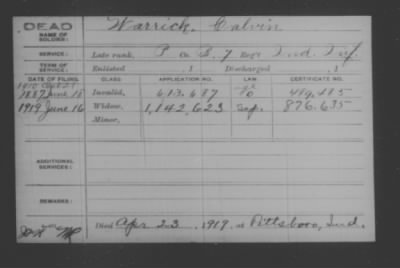 DEAD
NAME OF SOLDIER: Warrick, Calvin
SERVICE: Late rank, P Co. I, 7 Reg't Ind. Inf.
TERM OF SERVICE: Enlisted , 1 Discharged , 1
DATE OF FILING. CLASS. APPLICATION NO. LAW. CERTIFICATE NO.
1887 June 18 Invalid, 613.687 489.185
1919 June 16 Widow, 1,142,623 876.635
Minor,
ADDITIONAL SERVICES:
REMARKS:
Died Apr 23, 1919, at Pittsboro, Ind.